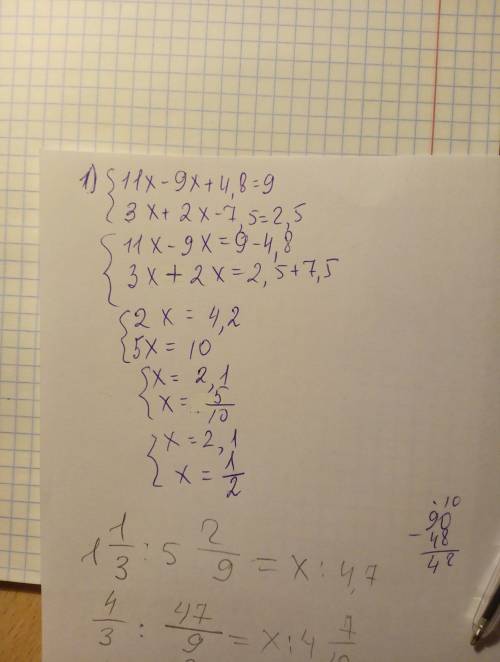 1) { 11x-9x+4,8=9
3x+2x-7,5=2,5
{ 11x-9x=9-4,8
3x+2x=2,5+7,5
{ 2x=4,2
5x=10
{ x=2,1
x=5/10
{ x=2,1
x=1/2
1 1/3 : 5 2/9 = x : 4,7
4/3 : 47/9 = x : 4 7/10
·10
90
- 48
42